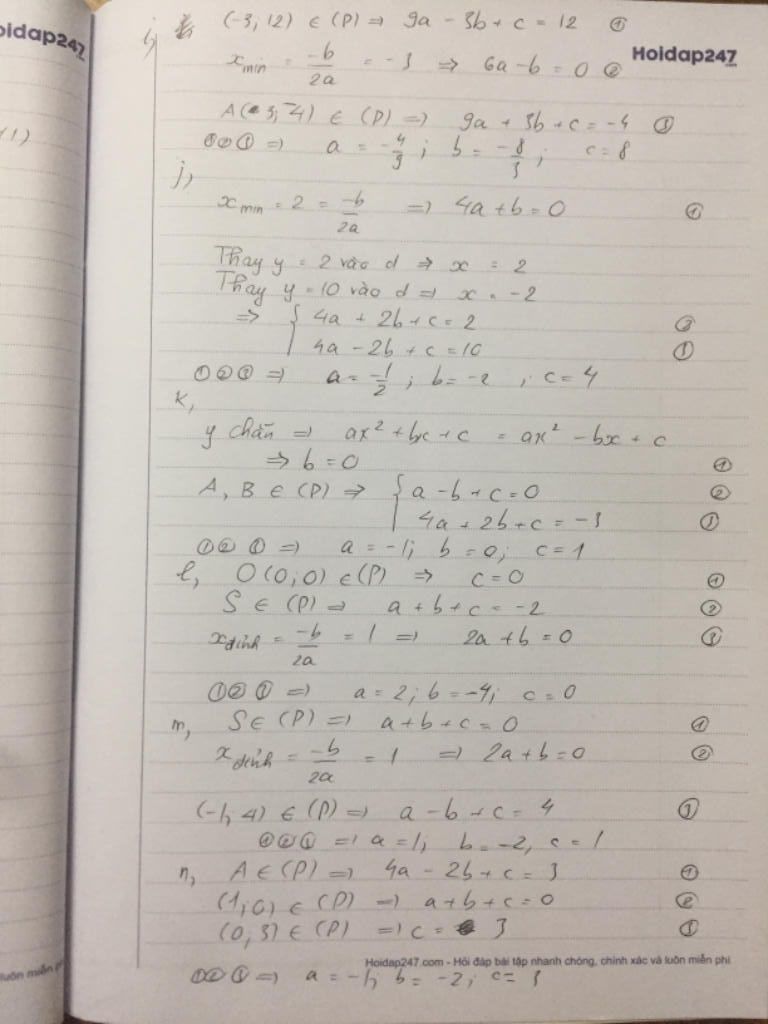 oidap247
Hoidap247
(-3, 12) ∈ (P) => 9a - 3b + c = 12 ①
x min = -b/2a = -3 => 6a - b = 0 ②
A(3; -4) ∈ (P) => 9a + 3b + c = -4 ③
①②③ => a = -4/9; b = -8/3; c = 8
j,
x min = 2 = -b/2a => 4a + b = 0 ①
Thay y = 2 vào d => x = 2
Thay y = 10 vào d => x = -2
=> { 4a + 2b + c = 2 ②
4a - 2b + c = 10 ③
①②③ => a = -1/2; b = -2, c = 4
k,
y chẵn => ax² + bx + c = ax² - bx + c
=> b = 0 ①
A, B ∈ (P) => { a - b + c = 0 ②
4a + 2b + c = -3 ③
①②③ => a = -1; b = 0; c = 1
l, O(0; 0) ∈ (P) => c = 0 ①
S ∈ (P) => a + b + c = -2 ②
x đỉnh = -b/2a = 1 => 2a + b = 0 ③
①②③ => a = 2; b = -4; c = 0
m, S ∈ (P) => a + b + c = 0 ①
x đỉnh = -b/2a = 1 => 2a + b = 0 ②
(-1, 4) ∈ (P) => a - b + c = 4 ③
①②③ => a = 1; b = -2, c = 1
n, A ∈ (P) => 4a - 2b + c = 3 ①
(1; 0) ∈ (P) => a + b + c = 0 ②
(0, 3) ∈ (P) => c = 3 ③
Hoidap247.com - Hỏi đáp bài tập nhanh chóng, chính xác và luôn miễn phí
①②③ => a = -1, b = -2; c = 3
luôn miễn phí